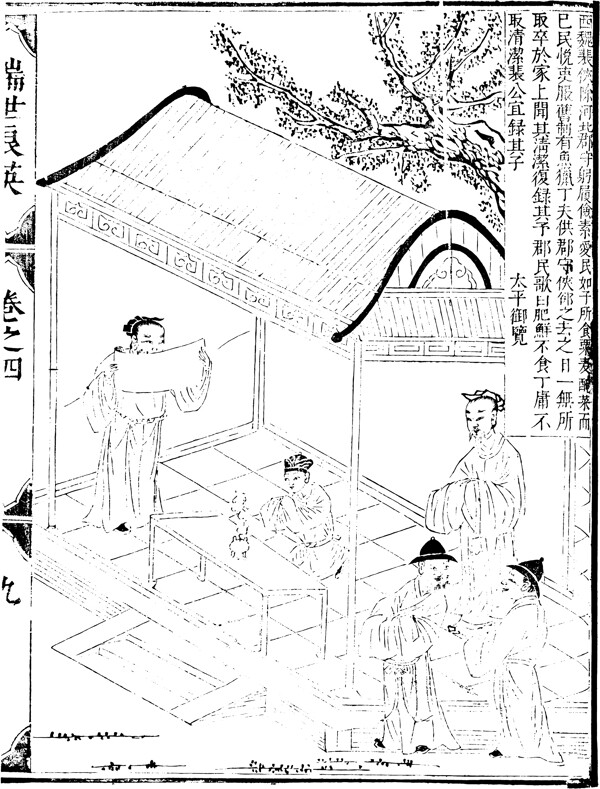 西魏裴俠除河北郡守躬履儉素愛民如子所食粟麦鹹菜而
已民悦吏服舊制有魚獵丁夫供郡守俠郤之去之日一無所
取卒於家上聞其清潔復録其子郡民歌曰肥鮮不食丁庸不
取清潔裴公宜録其子
太平御覽
瑞世良英
卷之四
九